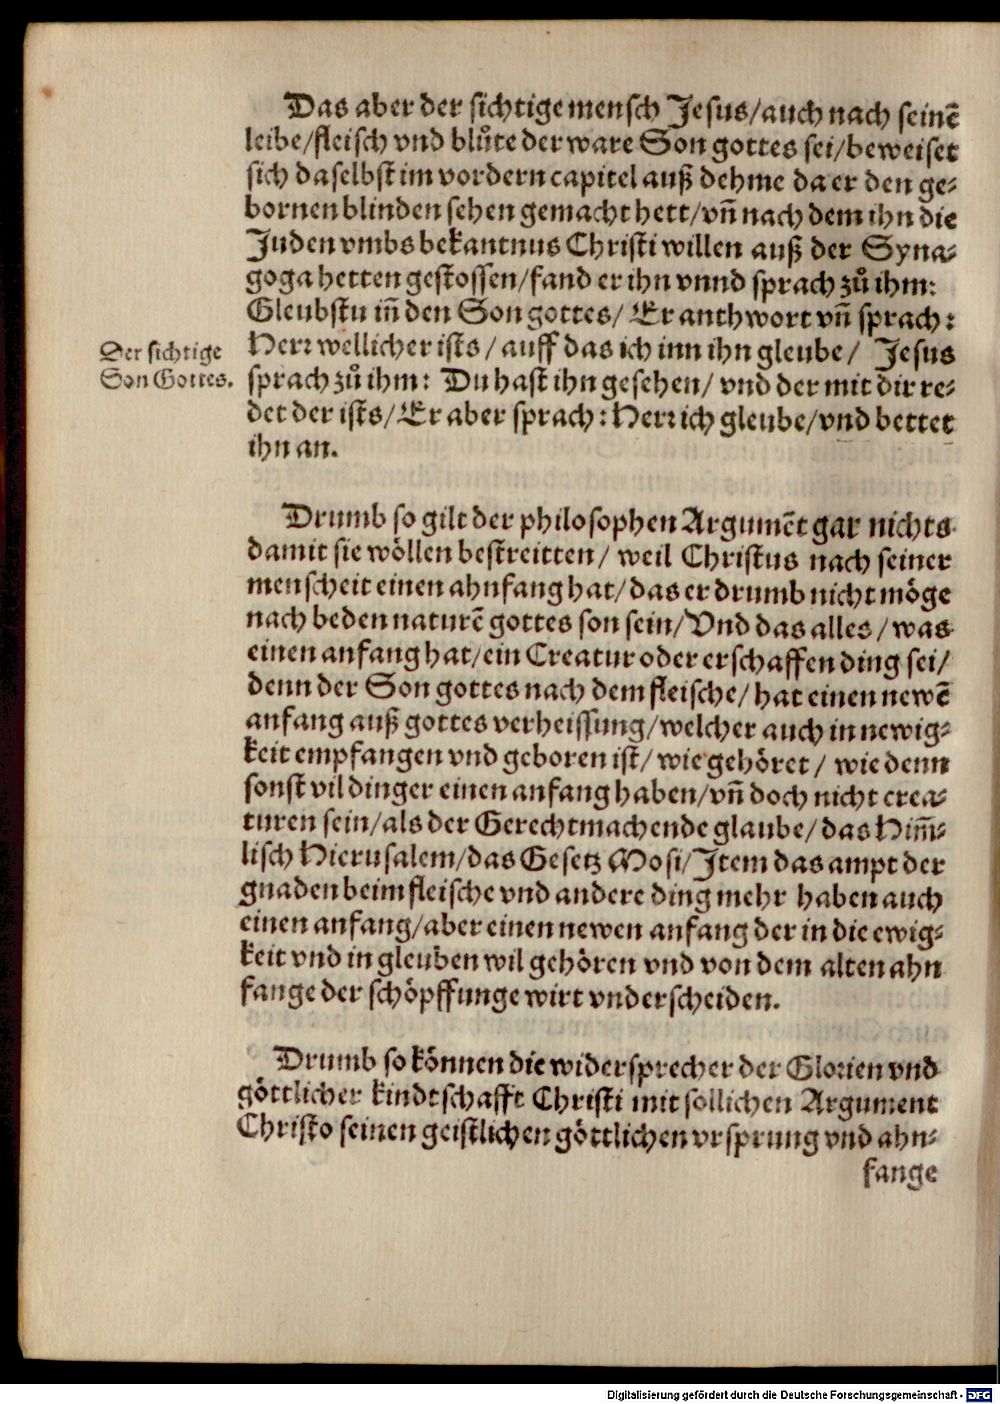 Das aber der sichtige mensch Jesus/auch nach seinē
leibe/fleisch vnd blůte der ware Son gottes sei/beweiset
sich daselbst im vordern capitel auß dehme da er den ge⸗
bornen blinden sehen gemacht hett/vñ nach dem ihn die
Juden vmbs bekantnus Christi willen auß der Syna⸗
goga hetten gestossen/fand er ihn vnnd sprach zů ihm:
Gleubstu iñ den Son gottes/ Er anthwort vñ sprach:
Der sichtige
Son Gottes.
Herr wellicher ists/ auff das ich inn ihn gleube/ Jesus
sprach zů ihm: Du hast ihn gesehen/ vnd der mit dir re⸗
det der ists/Er aber sprach: Herr ich gleube/vnd bettet
ihn an.
Drumb so gilt der philosophen Argumēt gar nichts
damit sie wöllen bestreitten/ weil Christus nach seiner
menscheit einen ahnfang hat/das er drumb nicht möge
nach beden naturē gottes son sein/Vnd das alles/was
einen anfang hat/ein Creatur oder erschaffen ding sei/
denn der Son gottes nach dem fleische/hat einen newē
anfang auß gottes verheissung/welcher auch in newig⸗
keit empfangen vnd geboren ist/ wie gehöret/ wie denn
sonst vil dinger einen anfang haben/vñ doch nicht crea⸗
turen sein/als der Gerechtmachende glaube/das Him̄⸗
lisch Hierusalem/das Gesetz Mosi/Item das ampt der
gnaden beim fleische vnd andere ding mehr haben auch
einen anfang/aber einen newen anfang der in die ewig⸗
keit vnd in gleuben wil gehören vnd von dem alten ahn
fange der schöpffunge wirt vnderscheiden.
Drumb so können die widersprecher der Glorien vnd
göttlicher kindtschafft Christi mit sollichen Argument
Christo seinen geistlichen göttlichen vrsprung vnd ahn⸗
fange
Digitalisierung gefördert durch die Deutsche Forschungsgemeinschaft - DFG